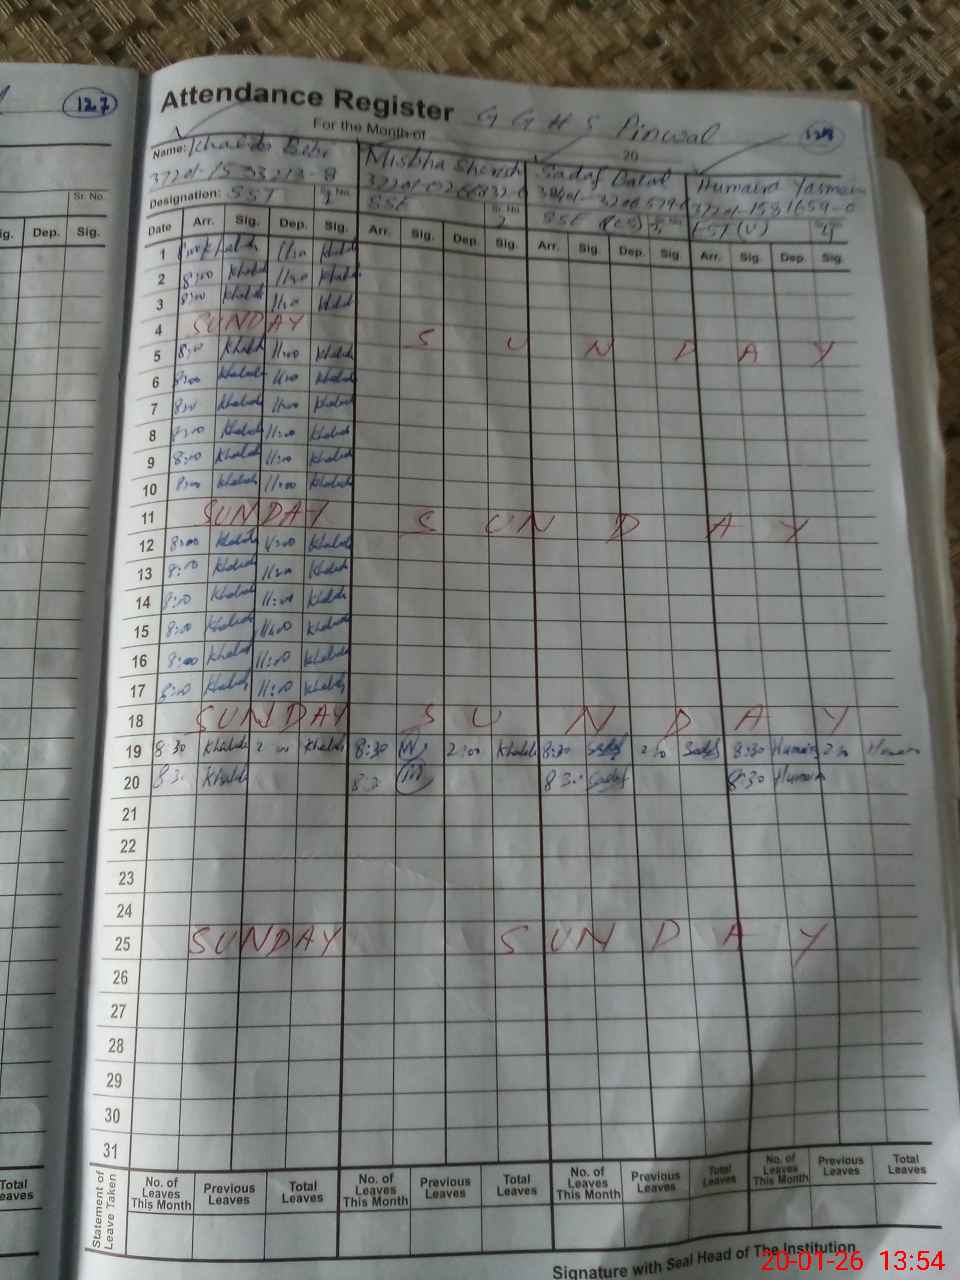 127
Attendance Register GGHS Pinwal
For the Month of 20
Name: Khalida Bibi Misbha Sadaf Humaira
Designation: SST Sr. No. SSE Sr. No. SSE
Sr. No.
Dep. Sig.
Date Arr. Sig. Dep. Sig. Arr. Sig. Dep. Sig. Arr. Sig. Dep. Sig. Arr. Sig. Dep. Sig.
1 Khalida Khalida
2 8:00 Khalida 11:00 Khalida
3 8:00 Khalida 11:00 Khalida
4 SUNDAY S U N D A Y
5 8:00 Khalida 11:00 Khalida
6 8:00 Khalida 11:00 Khalida
7 8:00 Khalida 11:00 Khalida
8 8:00 Khalida 11:00 Khalida
9 8:00 Khalida 11:00 Khalida
10 8:00 Khalida 11:00 Khalida
11 SUNDAY S U N D A Y
12 8:00 Khalida Khalida
13 8:00 Khalida 11:00 Khalida
14 8:00 Khalida 11:00 Khalida
15 8:00 Khalida 11:00 Khalida
16 8:00 Khalida 11:00 Khalida
17 8:00 Khalida 11:00 Khalida
18 SUNDAY S U N D A Y
19 8:30 Khalida 2:00 Khalida 8:30 2:00 Khalida 8:30 Sadaf 2:00 Sadaf 8:30 Humaira 2:00 Humaira
20 8:30 Khalida 8:30 8:30 Sadaf 8:30 Humaira
21
22
23
24
25 SUNDAY S U N D A Y
26
27
28
29
30
31
Statement of Leave Taken
No. of Leaves This Month Previous Leaves Total Leaves No. of Leaves This Month Previous Leaves Total Leaves No. of Leaves This Month Previous Leaves Total Leaves No. of Leaves This Month Previous Leaves Total Leaves
Signature with Seal Head of The Institution
20-01-26 13:54